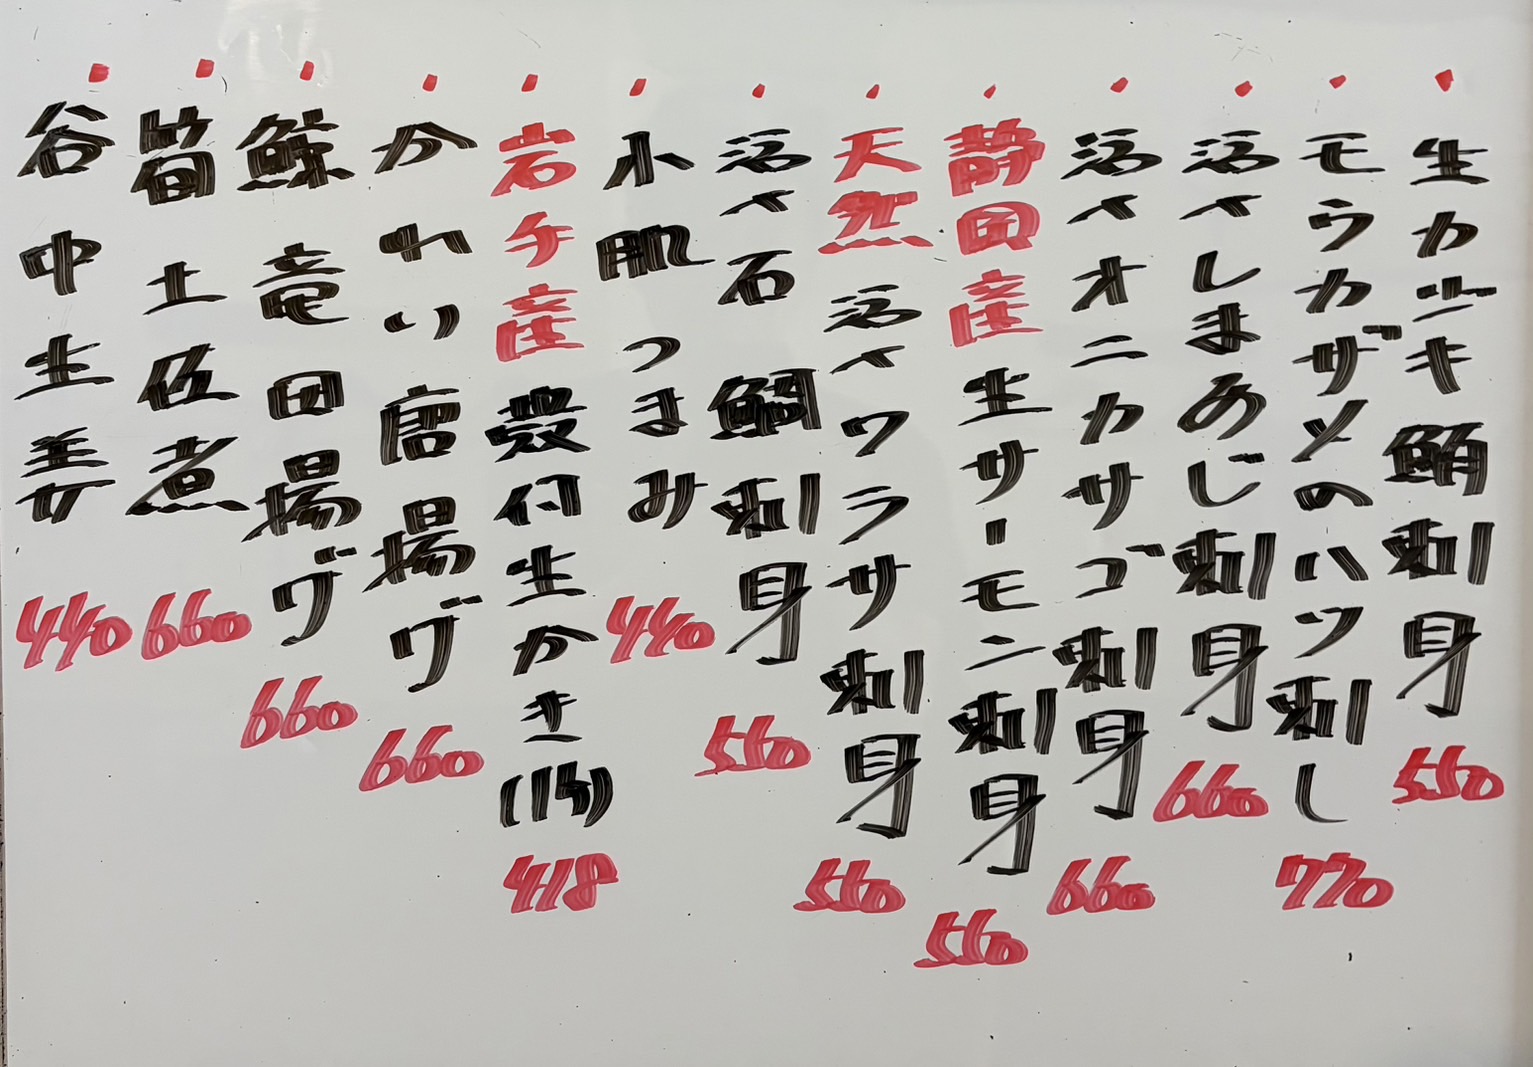 生カジキ鮪刺身 550
モウカザメのハツ刺し 770
活〆しまあじ刺身 660
活〆オニカサゴ刺身 660
静岡産生サーモン刺身 550
天然活〆ワラサ刺身 550
活〆石鯛刺身 550
小肌つまみ 440
岩手産殻付生かき(1ヶ) 418
かれい唐揚げ 660
鯨竜田揚げ 660
筍土佐煮 660
谷中生姜 440